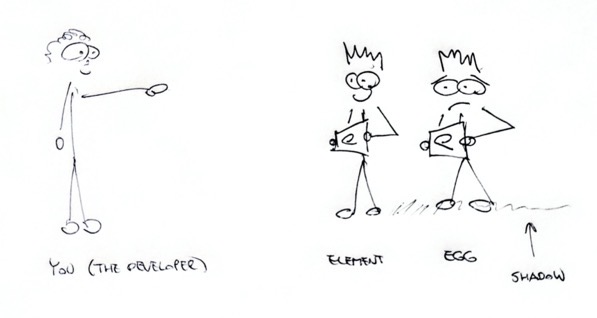 e
e
YOU (THE DEVELOPER)
ELEMENT
EGG
SHADOW